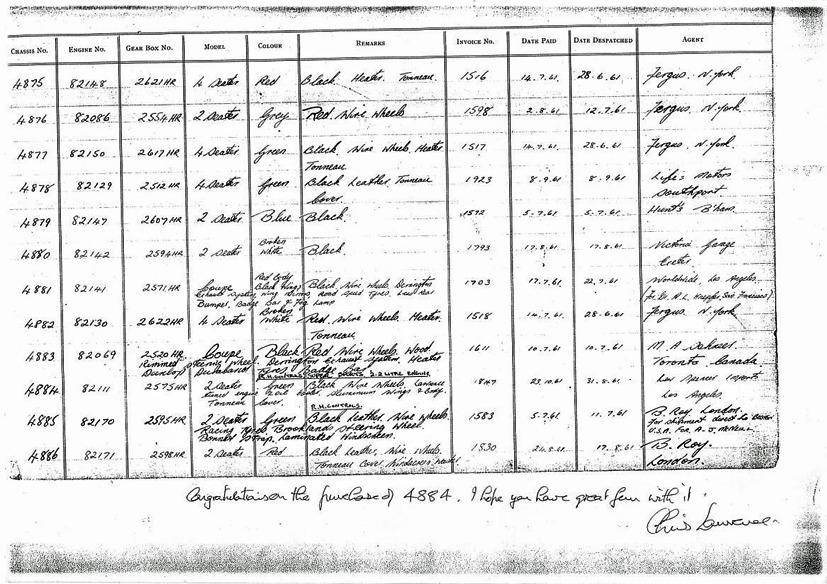 CHASSIS No. ENGINE No. GEAR BOX No. MODEL COLOUR REMARKS INVOICE No. DATE PAID DATE DESPATCHED AGENT
4875 82148 2621HR 4 Seater Red Black. Heater. Tonneau. 1516 14.7.61 28.6.61 Fergus. N. York.
4876 82086 2554HR 2 Seater Grey Red. Wire Wheels 1598 2.8.61 12.7.61 Fergus. N. York.
4877 82150 2617HR 4 Seater Green Black Wire Wheels, Heater 1517 14.7.61 28.6.61 Fergus. N. York.
Tonneau
4878 82129 2512HR 4 Seater Green Black Leather, Tonneau 1923 8.9.61 8.9.61 Motors
Cover. Southport
4879 82147 2607HR 2 Seater Blue Black. 1572 5.7.61 5.7.61 Hunt's B'ham.
4880 82142 2594HR 2 Seater Broken White Black. 1793 17.8.61 17.8.61 Victoria Garage
Exeter
4881 82141 2571HR Coupe Red Body Black Wings Black Wire Wheels, Derrington 1703 17.7.61 22.7.61 Worldwide, Los Angeles,
Exhaust System, Road Speed Tyres,
Bumper, Badge Bar & Fog Lamp San Francisco).
4882 82130 2622HR 4 Seater Broken White Red. Wire Wheels, Heater, 1518 14.7.61 28.6.61 Fergus. N. York
Tonneau
4883 82069 2520HR Coupe Black Red Wire Wheels, Wood 1611 10.7.61 10.7.61 M. A.
Rimmed Steering Wheel. Derrington Exhaust System, Heater Toronto Canada
Dunlop Badge Bar
4884 82111 2575HR 2 Seater Green Black Wire Wheels, Lawrence 1847 23.10.61 31.8.61 Los
tuned engine Aluminium Wings & Body. Los Angeles.
Tonneau Cover. R.H. CONTROLS.
4885 82170 2595HR 2 Seater Green Black Leather, Wire Wheels 1583 5.7.61 11.7.61 B. Roy. London.
Racing Tyres Brooklands Steering Wheel. for shipment direct to
Bonnet Strap, Laminated Windscreen. U.S.A. for
4886 82171 2598HR 2 Seater Red Black Leather, Wire Wheels. 1830 24.8.61 17.8.61 B. Roy.
Tonneau Cover, Windscreen London.
Congratulations on the purchase of 4884. I hope you have great fun with it.
Chris Lawrence